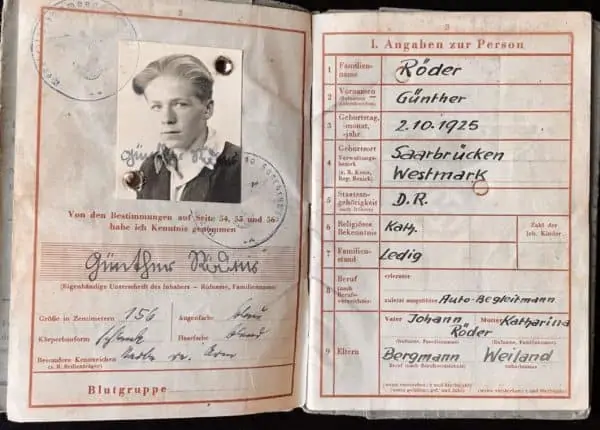 2
Günther
Von den Bestimmungen auf Seite 54, 55 und 56
habe ich Kenntnis genommen
Günther
(Eigenhändige Unterschrift des Inhabers – Rufname, Familienname)
Größe in Zentimetern 156 Augenfarbe blau
Körperbauform schlank Haarfarbe blond
Besondere Kennzeichen Narbe re. Arm
(z. B. Brillenträger)
Blutgruppe
3
I. Angaben zur Person
1 Familien-
name Röder
2 Vornamen Günther
3 Geburtstag,
-monat,
-jahr 2.10.1925
4 Geburtsort Saarbrücken
Verwaltungs-
bezirk Westmark
(z. B. Kreis,
Reg. Bezirk)
5 Staatsan-
gehörigkeit D.R.
6 Religiöses
Bekenntnis Kath. Zahl der
leb. Kinder
7 Familien-
stand Ledig
8 Beruf erlernter
(nach
Berufs-
verzeichnis) zuletzt ausgeübter Auto-Begleitmann
9 Eltern Vater Johann Mutter Katharina
Röder
(Rufname, Familienname) (Rufname, Familienname)
Bergmann Weiland